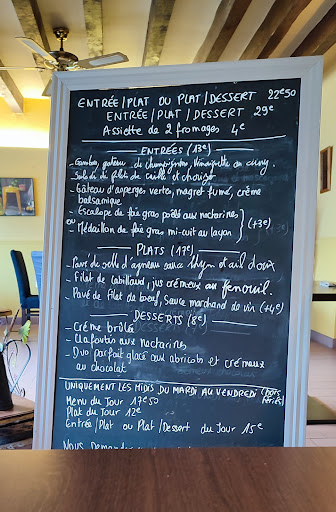 ENTRÉE/PLAT OU PLAT/DESSERT 22€50
ENTRÉE/PLAT/DESSERT 29€
Assiette de 2 fromages 4€
ENTRÉES (13€)
- Gambas, gateau de champignons, Vinaigrette au curry.
- Salade de filet de caille et chorizo
- Gâteau d'asperges vertes, magret fumé, crème
balsamique
- Escalope de foie gras poêlé aux nectarines
ou Médaillon de foie gras mi-cuit au layon } (+3€)
PLATS (17€)
- Pavé de selle d'agneau sauce thym et ail doux
- Filet de cabillaud, jus crémeux au fenouil.
- Pavé de filet de bœuf, sauce marchand de vin (+4€)
DESSERTS (8€)
- Crème brûlée
- Clafoutis aux nectarines
- Duo parfait glacé aux abricots et crémeux
au chocolat
UNIQUEMENT LES MIDIS DU MARDI AU VENDREDI (hors fériés)
Menu du Jour 17€50
Plat du Jour 12€
Entrée/Plat ou Plat/Dessert du Jour 15€
NOUS